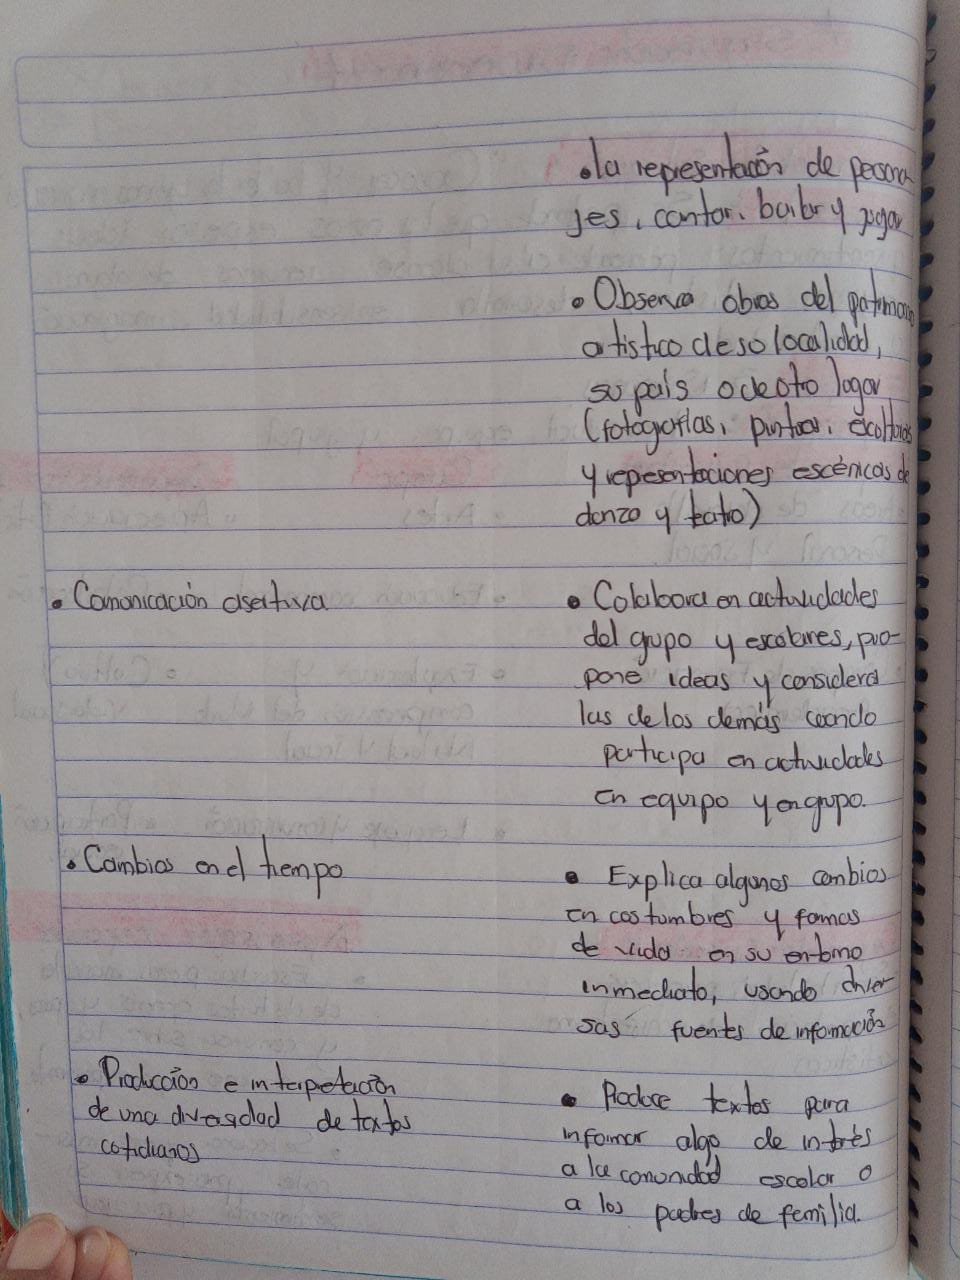 • la representación de persona
jes, cantar, bailar y jugar
• Observa obras del patrimonio
artístico de su localidad,
su país o de otro lugar
(fotografías, pinturas, esculturas
y representaciones escénicas de
danza y teatro)
• Comunicación asertiva
• Colabora en actividades
del grupo y escolares, pro-
pone ideas y considera
las de los demás cuando
participa en actividades
en equipo y en grupo.
• Cambios en el tiempo
• Explica algunos cambios
en costumbres y formas
de vida en su entorno
inmediato, usando diver
sas fuentes de información
• Producción e interpretación
de una diversidad de textos
cotidianos
• Produce textos para
informar algo de interés
a la comunidad escolar o
a los padres de familia.